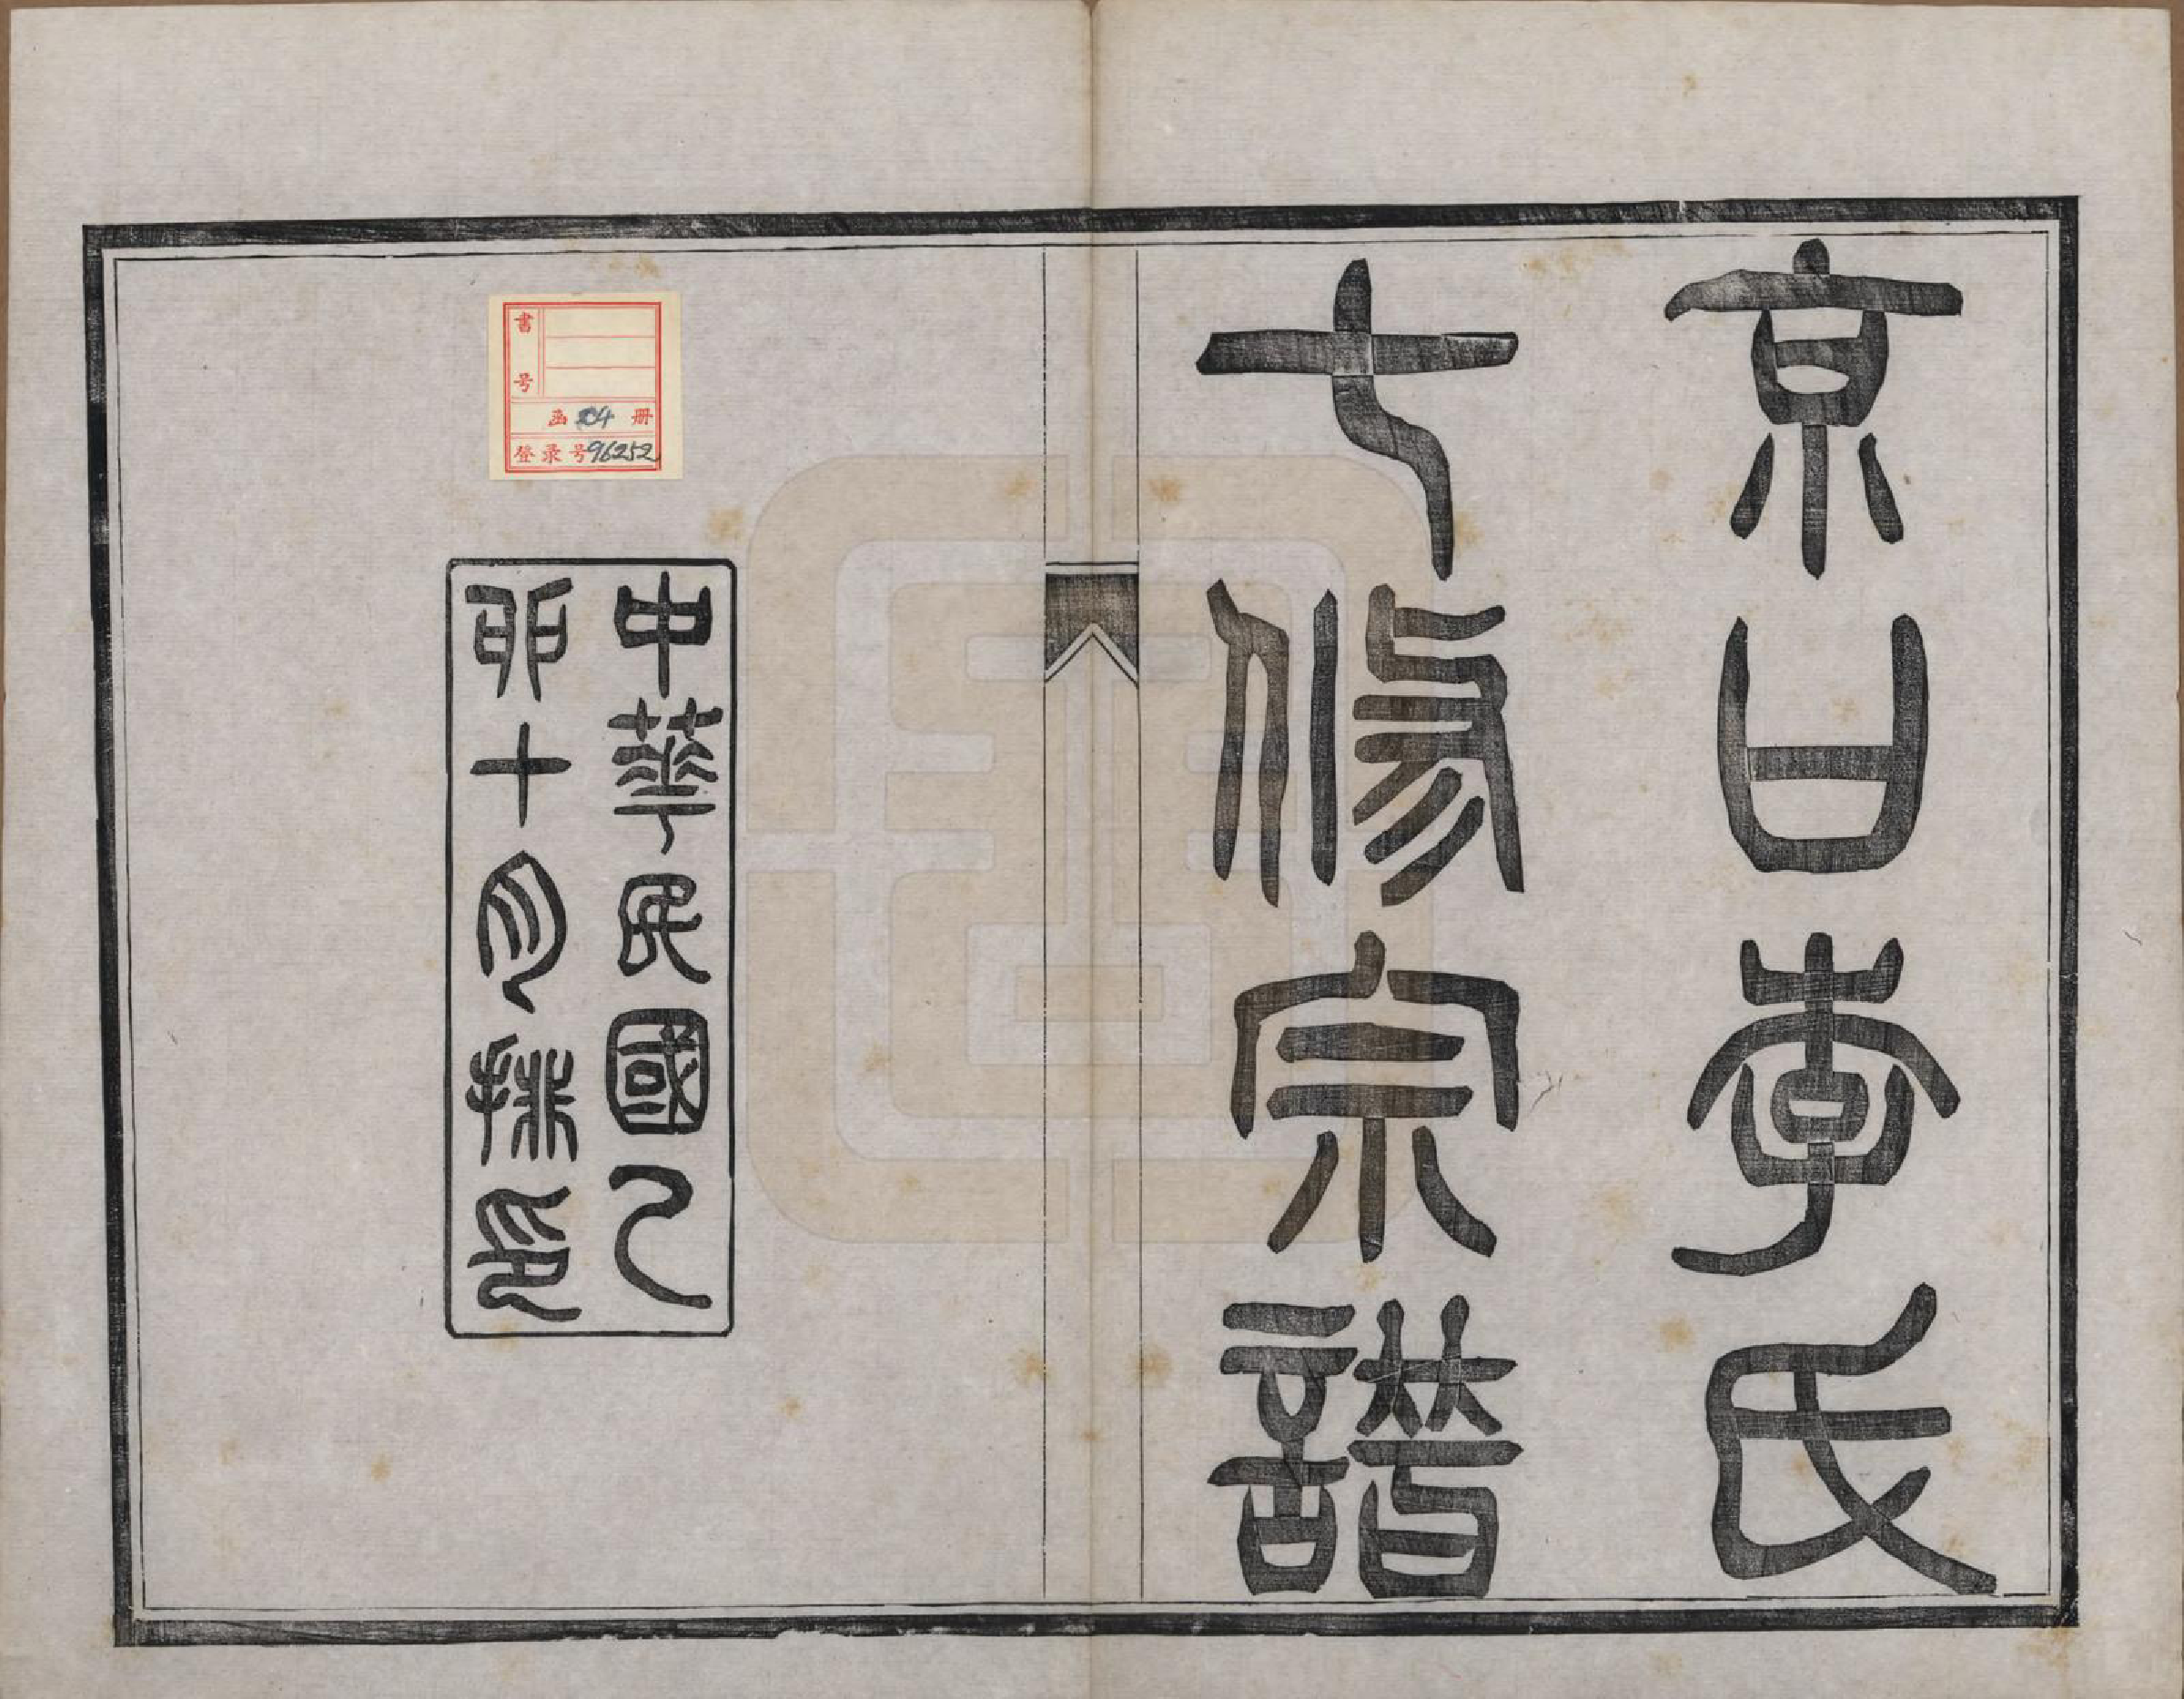 京口李氏
七修宗譜
中華民國乙
卯十月排印
書号
函 104 册
登录号96252